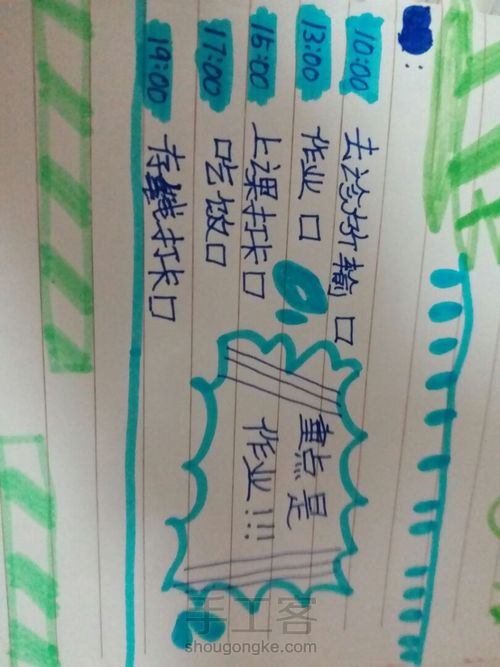 10:00 去诊所输 □
13:00 作业 □
15:00 上课打卡 □
17:00 吃饭 □
19:00 存钱打卡 □
重点是
作业!!!
手工客
shougongke.com